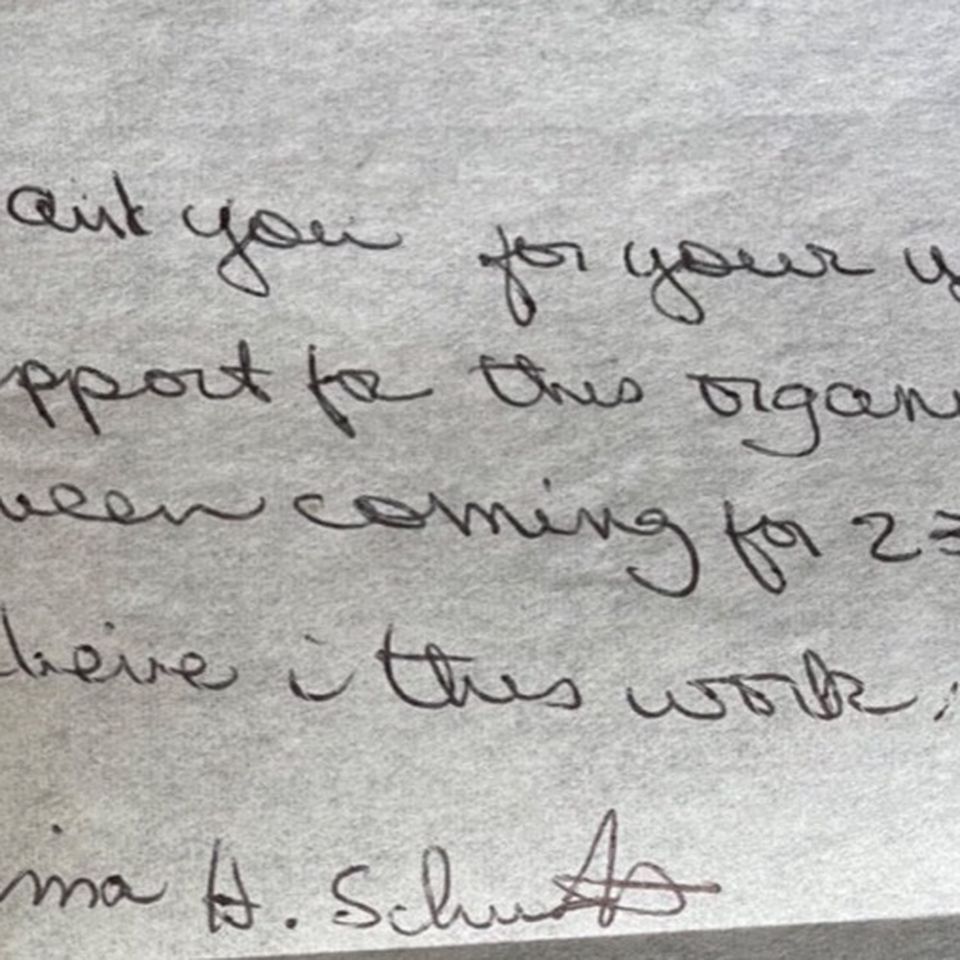 ank you for your y
pport for this organi
been coming for 23
lieve in this work.
ma H.